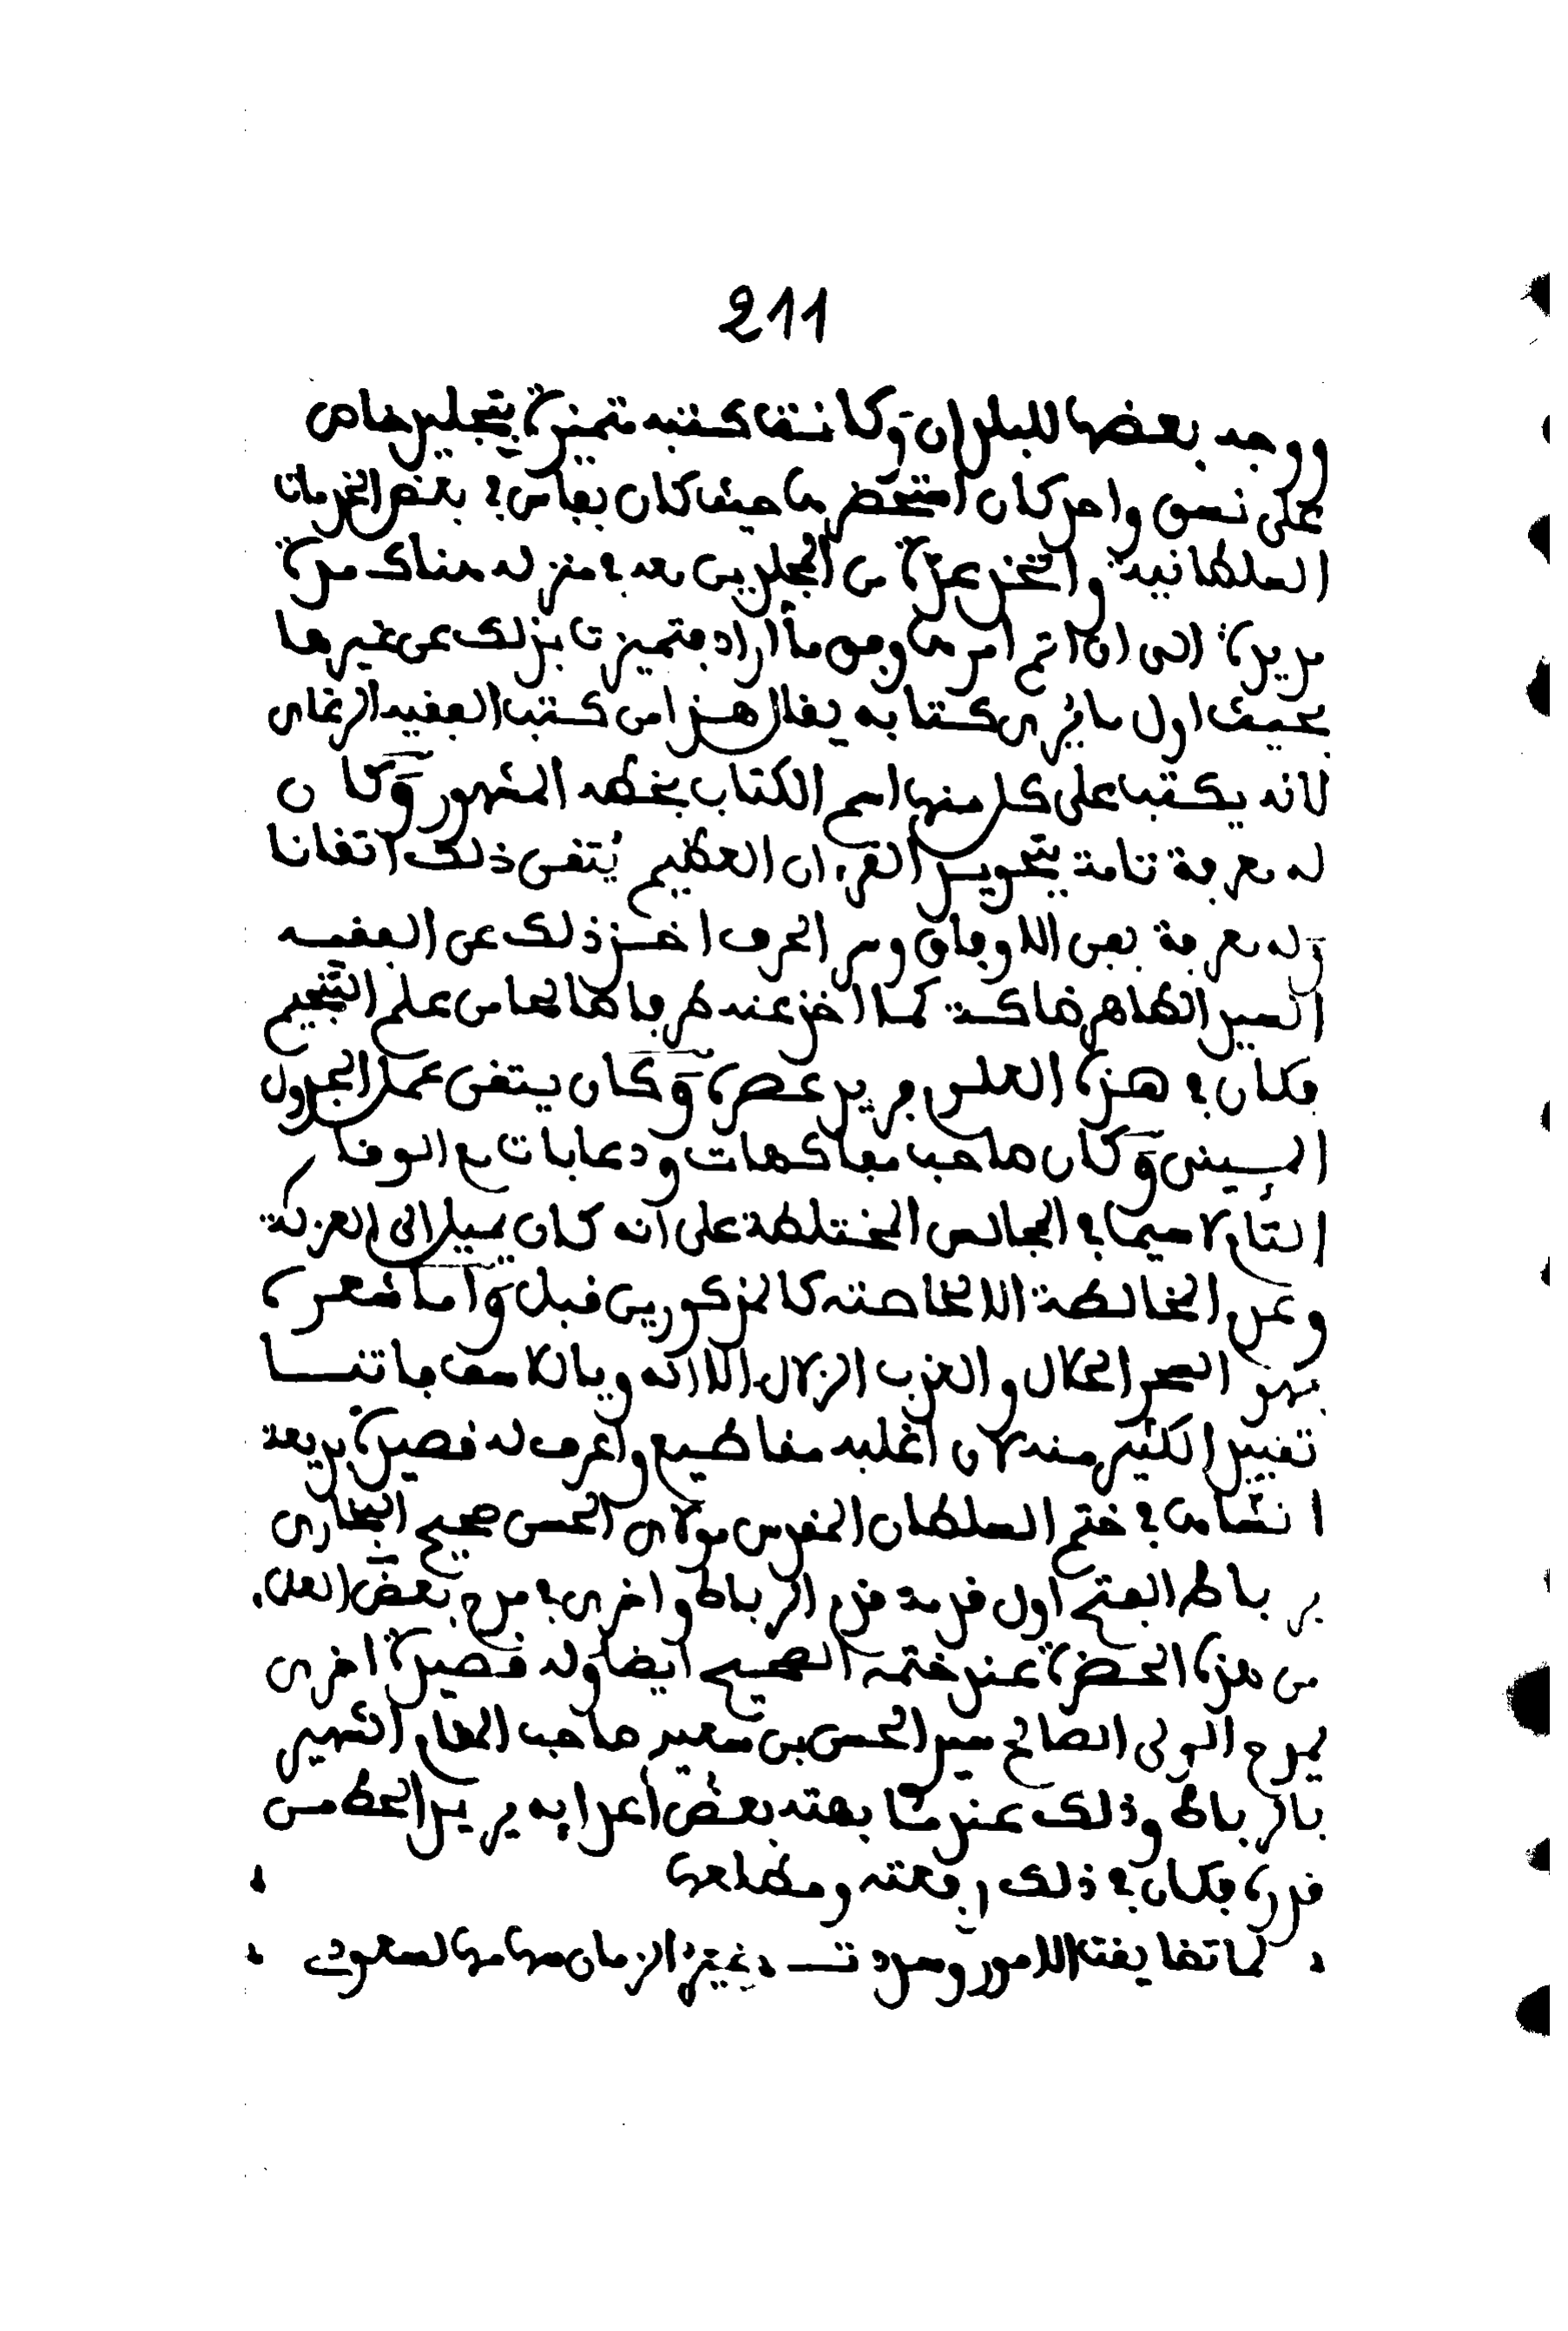 211
ووجه بعضها للبلدان وكانت كتبه متميزة بتجليد خاص
على نسق واحد كان استحضرها حيث كان بفاس في بعض الخدمات
السلطانية واتخذ عدة من المجلدين معه في منزله هناك مدة
مديدة الى ان اتم امرها وفق ما اراد فتميزت بذلك عن غيرها
بحيث اول ما يرى كتابه يقال هذا من كتب الفقيه الرغاى
لانه يكتب على كل منها اسم الكتاب بخطه المشهور وكان
له معرفة تامة بتجويد القرءان العظيم يتقن ذلك اتقانا
وله معرفة بفن الاوفاق وسر الحرف اخذ ذلك عن الفقيه
السيد الطاهر ضاكة كما اخذ عنه طرفا صالحا من علم التنجيم
فكان في هذه العلوم فريد عصره وكان يتقن عمل الجدول
السيني وكان صاحب مفاكهات ودعابات مع الوقار
التام لا سيما في المجالس المختلطة على انه كان يميل الى العزلة
وعدم المخالطة الا لخاصته كالمذكورين قبل واما شعره
فهو السحر الحلال والعذب الزلال الا انه ويا للاسف ما تنسا
تقييد الكثير منه لان اغلبه مقاطيع واعرف له قصيدة بديعة
انشاها في ختم السلطان المقدس مولاى الحسن صحيح البخارى
برباط الفتح اول قدمة قدم الرباط واخرى في مدح بعض العل.
من هذه الحضرة عند ختمه الصحيح ايضا وله قصيدة اخرى
يمدح الولى الصالح سيد الحسن بن سعيد صاحب المقام الشهير
بالرباط وذلك عند مشابهته بعض اعدايه يريد الحط من
قدره فكان في ذلك رفعته ومطلعها
لما تضايقت الامور وسددت غير الزمان سهامها لسعود